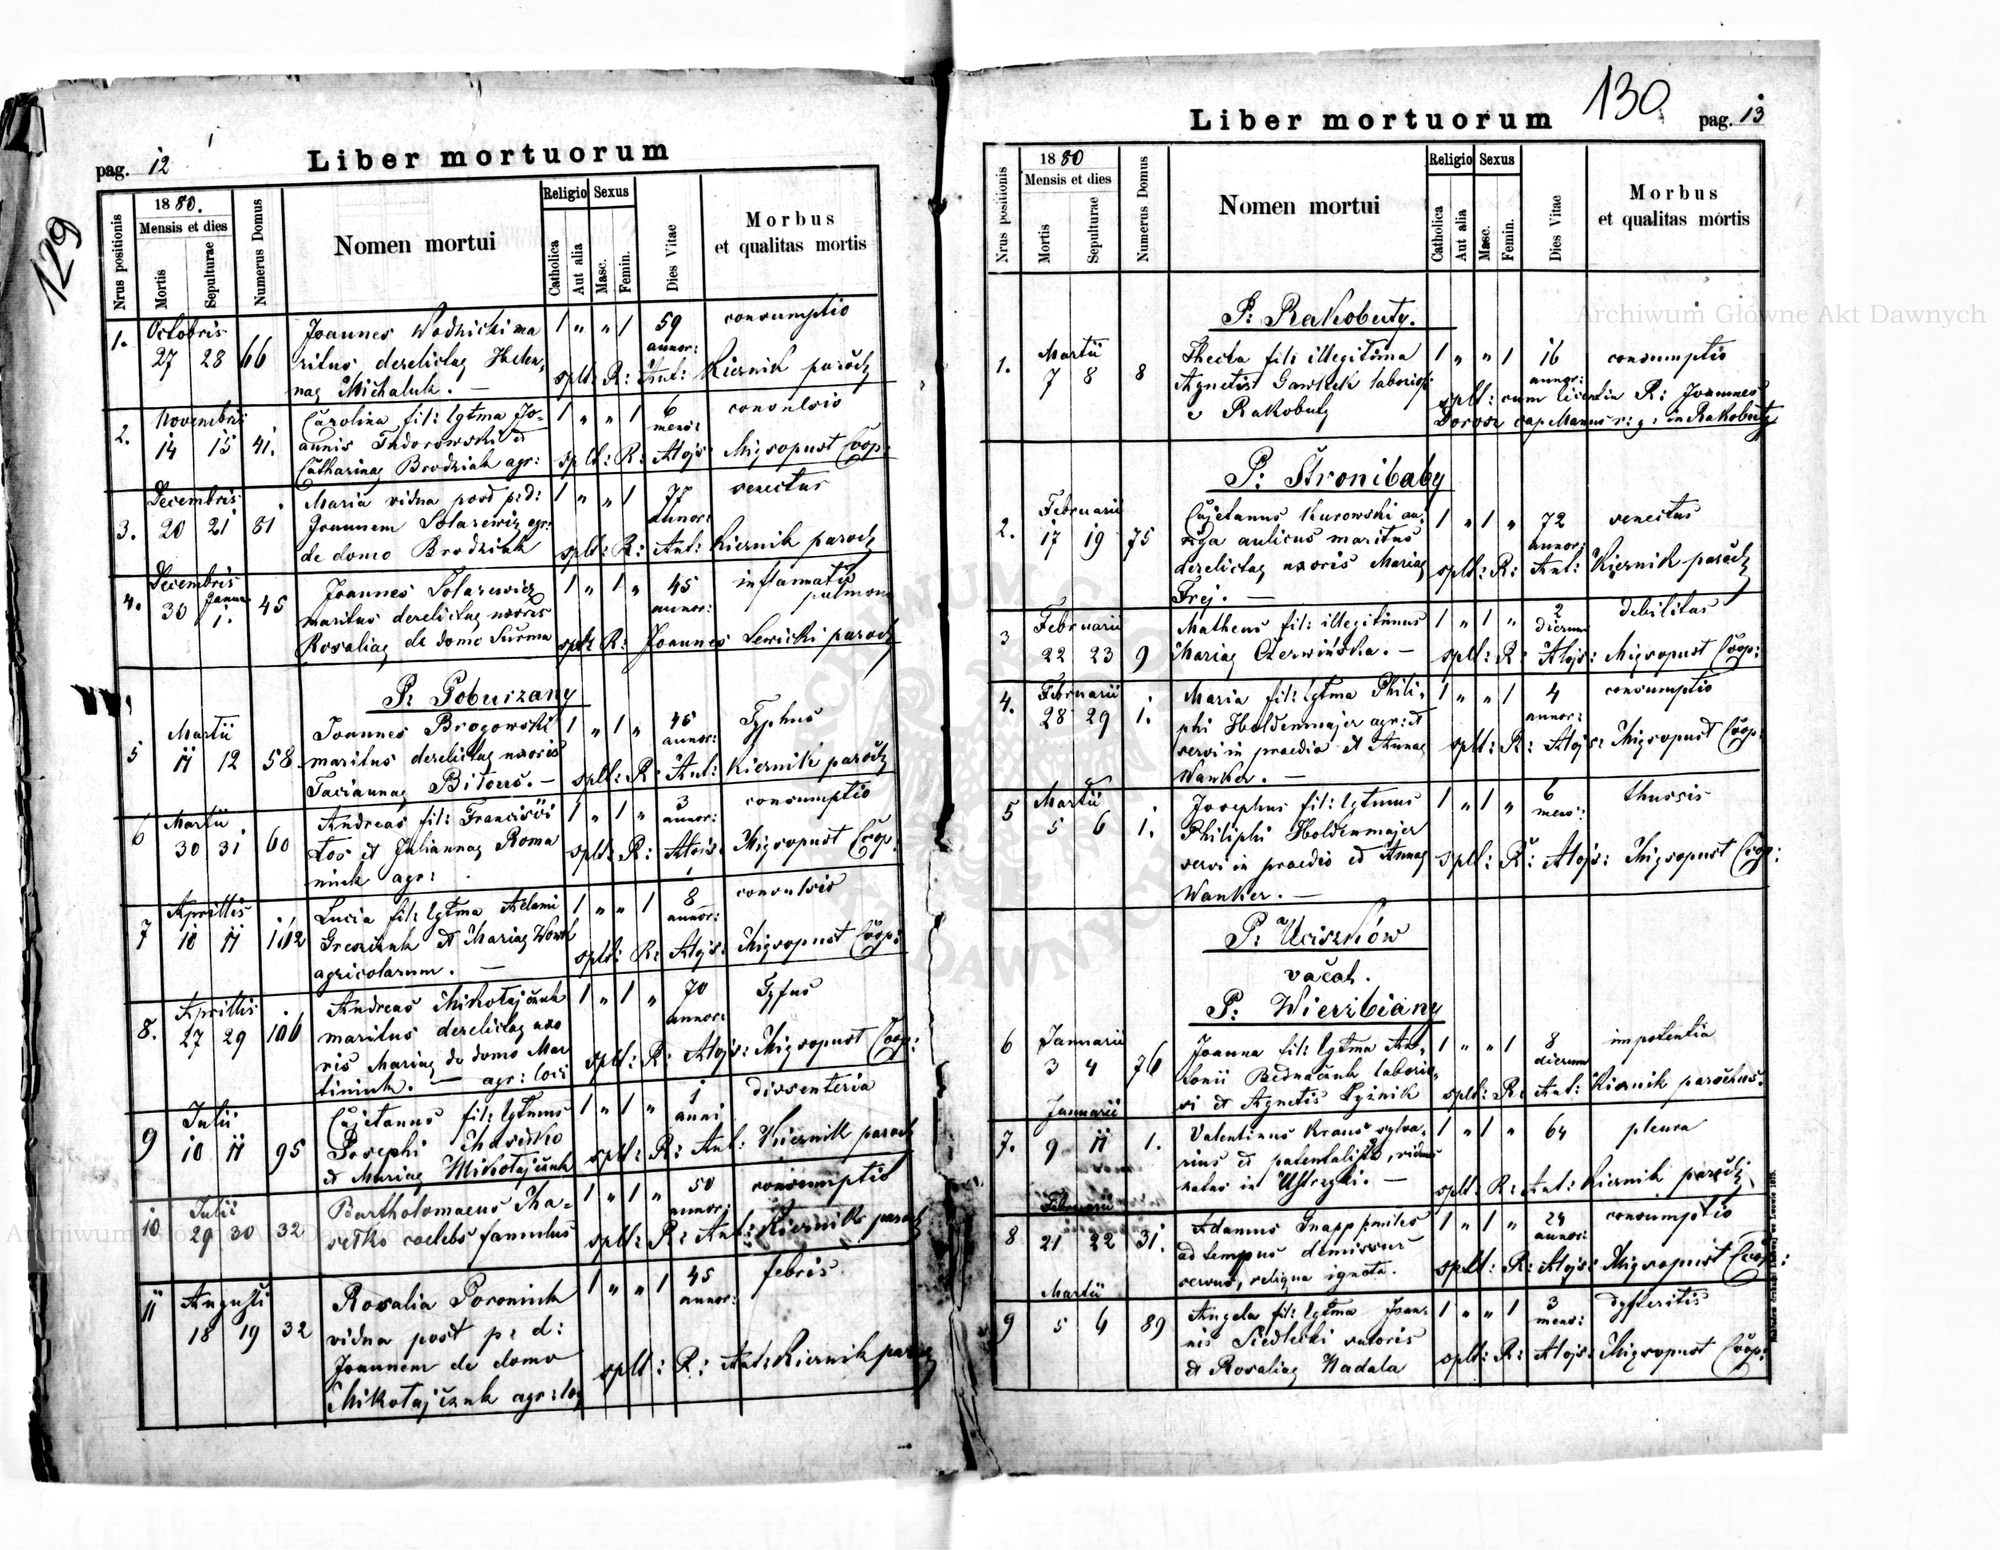 129
pag. 12
Liber mortuorum
Nrus positionis
1880.
Mensis et dies
Mortis
Sepulturae
Numerus Domus
Nomen mortui
Religio
Catholica
Aut alia
Sexus
Masc.
Femin.
Dies Vitae
Morbus
et qualitas mortis
1. Octobris 27 28 66 Joannes Wodnicki ma 1 " " 1 59 annor: consumptio
ritus derelictae Hele-
nae Michaluk. — splt: R: Ant: Kiernik paroch
2. Novembris 14 15 41. Carolina fil: lgtma Jo- 1 " " 1 6 mens: convulsio
annis Thdorowski et
Catharinae Brodziak agr: splt: R: Alojs: Migsopust Coop:
3. Decembris 20 21 81 Maria vidua post p: d: 1 " " 1 77 annor: senectus
Joannem Solarewicz agr:
de domo Brodziak splt: R: Ant: Kiernik paroch
4. Decembris 30 Janua 1. 45 Joannes Solarewicz 1 " 1 " 45 annor: inflamatio pulmon
maritus derelictae uxoris
Rosaliae de domo Surma splt: R: Joannes Lewicki paroch
P: Poburzany
5 Martii 11 12 58. Joannes Brogowski 1 " 1 " 45 annor: Typhus
maritus derelictae uxoris
Taciannae Bitous. — splt: R: Ant: Kiernik paroch
6 Martii 30 31 60 Andreas fil: Francisci 1 " 1 " 3 annor: consumptio
Los et Juliannae Roma
niuk agr: splt: R: Alois: Migsopust Coop:
7 Aprillis 10 11 112 Lucia fil: lgtma Adami 1 " " 1 8 annor: convulsio
Greszczuk et Mariae Wowk
agricolarum. — splt: R: Alojs: Migsopust Coop:
8. Aprillis 27 29 106 Andreas Mikołajczuk 1 " 1 " 70 annor: Tyfus
maritus derelictae uxo
ris Mariae de domo Mar
tiniuk. — agr: loci splt: R: Alojs: Migsopust Coop:
9 Julii 10 11 95 Cajetanus fil: lgtmus 1 " 1 " 1 anni dissenteria
Josephi
et Mariae Mikołajczuk splt: R: Ant: Kiernik paroch
10 Julii 29 30 32 Bartholomaeus Tha- 1 " 1 " 50 annor: consumptio
setko coelebs famulus splt: R: Ant: Kiernik paroch
11 Augusti 18 19 32 Rosalia Poroniuk 1 " " 1 45 annor: febris
vidua post p: d:
Joannem de domo splt: R: Ant: Kiernik paroch
Mikołajczuk agr: loc
130
Liber mortuorum
pag. 13
Nrus positionis
1880
Mensis et dies
Mortis
Sepulturae
Numerus Domus
Nomen mortui
Religio
Catholica
Aut alia
Sexus
Masc.
Femin.
Dies Vitae
Morbus
et qualitas mortis
P: Rakobuty.
1. Martii 7 8 8 Thecla fil: illegitima 1 " " 1 16 annor: consumptio
Agnetis Gawlek laborios:
e Rakobuty splt: cum licentia R: Joannes
Dorosz cap Manus r: g: in Rakobuty
P: Stronibaby
2. Februarii 17 19 75 Cajetanus Kurowski au- 1 " 1 " 72 annor: senectus
riga aulicus maritus
derelictae uxoris Mariae splt: R: Ant: Kiernik paroch
Frej. —
3 Februarii 22 23 9 Matheus fil: illegitimus 1 " 1 " 2 dierum debilitas
Mariae Czerwińska. — splt: R: Alojs: Migsopust Coop:
4. Februarii 28 29 1. Maria fil: lgtma Phili- 1 " " 1 4 annor: consumptio
phi Holdenmajer agr: et
servi in praedio et Annae splt: R: Alojs: Migsopust Coop:
Wanker. —
5 Martii 5 6 1. Josephus fil: lgtmus 1 " 1 " 6 mens: thussis
Philiphi Holdenmajer
servi in praedio et Annae splt: R: Alojs: Migsopust Coop:
Wanker. —
P: Uciszków
vacat.
P: Wierzbiany
6 Januarii 3 4 76 Joanna fil: lgtma An- 1 " " 1 8 dierum impotentia
tonii Bednaczuk laborio-
si et Agnetis Łyźnik splt: R: Ant: Kiernik parochus.
7. Januarii 9 11 1. Valentinus Kraus sylva- 1 " 1 " 64 pleura
rius et patentalista, viduus
natus in Ustrzyki. — splt: R: Ant: Kiernik paroch
8 Februarii 21 22 31. Adamus Gnapp miles 1 " 1 " 24 annor: consumptio
ad tempus dimissus
servus, religna ignota. splt: R: Alojs: Migsopust Coop:
9 Martii 5 6 89 Angela fil: lgtma Joan- 1 " " 1 3 mens: dyfteritis
nis Siedlecki sutoris
et Rosaliae Nadala splt: R: Alojs: Migsopust Coop:
Archiwum Główne Akt Dawnych
Archiwum Główne Akt Dawnych
ARCHIWUM
AKT DAWNYCH